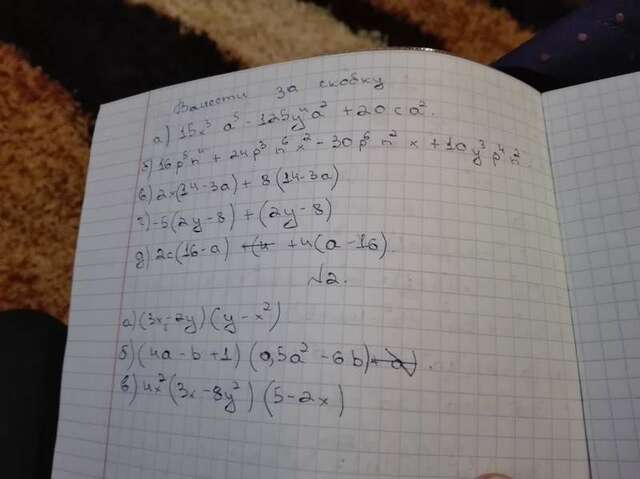 Вынести за скобку
а) 15x³ a⁵ - 125y⁴a² + 20ca².
б) 16p⁵n⁴ + 24p³n⁶x² - 30p⁶n²x + 10y³p⁴n².
в) 2x(14-3a) + 8(14-3a)
г) -5(2y-8) + (2y-8)
д) 2c(16-a) +4(a-16).
№2.
а) (3x-2y)(y-x²)
б) (4a-b+1)(0,5a²-6b)
в) 4x²(3x-8y²)(5-2x)